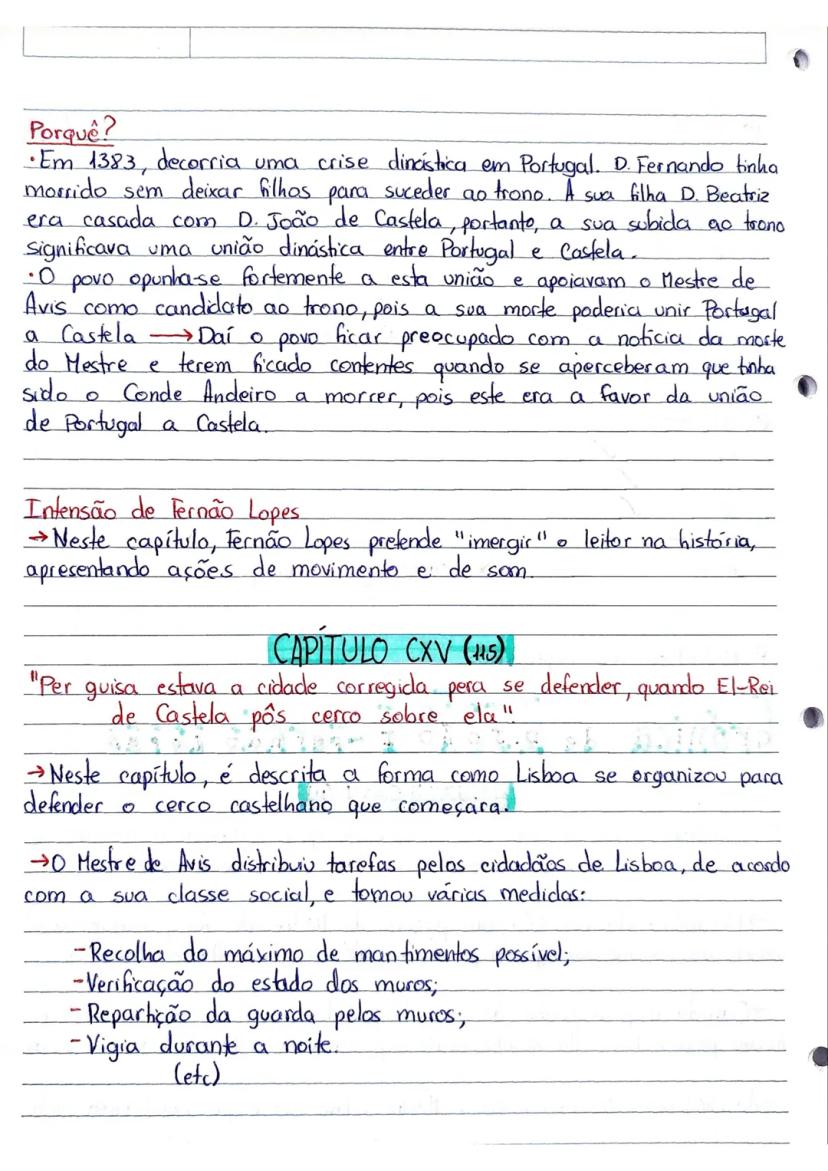 Porquê?
·Em 1383, decorria uma crise dinástica em Portugal. D. Fernando tinha
morrido sem deixar filhos para suceder ao trono. A sua filha D. Beatriz
era casada com D. João de Castela, portanto, a sua subida ao trono
significava uma união dinástica entre Portugal e Castela.
·O povo opunha-se fortemente a esta união e apoiavam o Mestre de
Avis como candidato ao trono, pois a sua morte poderia unir Portugal
a Castela → Daí o povo ficar preocupado com a notícia da morte
do Mestre e terem ficado contentes quando se aperceberam que tinha
sido o Conde Andeiro a morrer, pois este era a favor da união
de Portugal a Castela.
Intensão de Fernão Lopes
→ Neste capítulo, Fernão Lopes pretende "imergir" o leitor na história,
apresentando ações de movimento e de som.
CAPÍTULO CXV (115)
"Per guisa estava a cidade corregida pera se defender, quando El-Rei
de Castela pôs cerco sobre ela".
→ Neste capítulo, é descrita a forma como Lisboa se organizou para
defender o cerco castelhano que começara.
→ O Mestre de Avis distribuiu tarefas pelos cidadãos de Lisboa, de acordo
com a sua classe social, e tomou várias medidas:
- Recolha do máximo de mantimentos possível;
- Verificação do estado dos muros;
- Repartição da guarda pelos muros;
- Vigia durante a noite.
(etc)